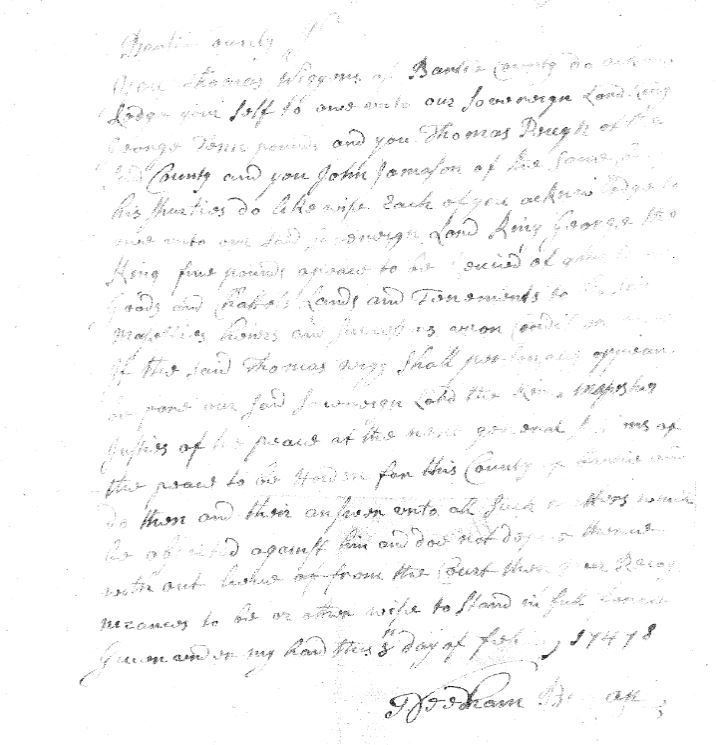 Bartie County
you Thomas Wiggens of Bartie County do acknow
Lodge your self to owe unto our Sovereign Lord King
George Tenn pounds and you Thomas Pugh of the
Sd County and you John Jamason of the same
his Shurties do likewise Each of you acknowlodge to
owe unto our said Sovereign Lord King George the
King five pounds apeace to be Levied of
Goods and Chattels Lands and Tenements to
Majesties heires and upon Condition
if the said Thomas wigg Shall personaly appear
be pore our said Sovereign Lord the King Majesties
Justies of he peace at the next general of
the peace to be Holden for this County of Bartie and
do then and their answer unto all Such matters
be objected against him and doe not depart thence
with out leave of from the Court then your Recog
nizances to be or other wise to Stand in full
Given under my hand this 8 day of feb 17478
Needham